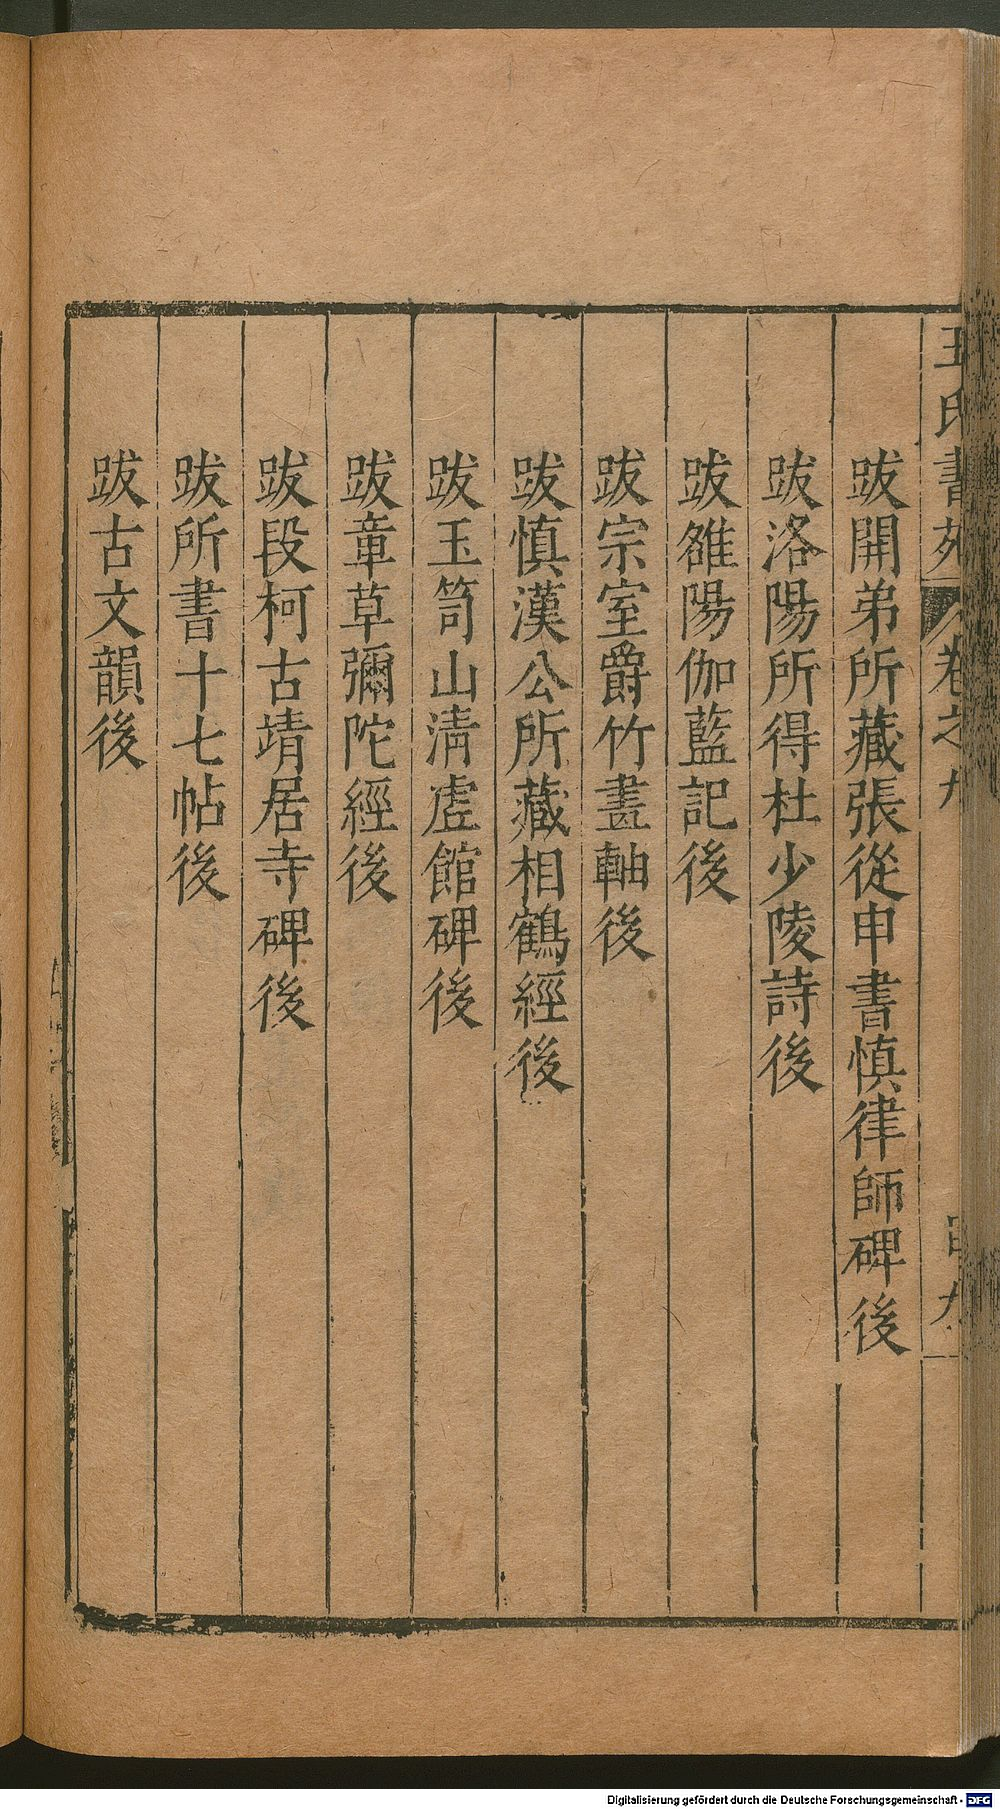 王氏書苑 卷之九
跋開弟所藏張從申書慎律師碑後
跋洛陽所得杜少陵詩後
跋雒陽伽藍記後
跋宗室爵竹畫軸後
跋慎漢公所藏相鶴經後
跋玉笥山清虗館碑後
跋章草彌陀經後
跋段柯古靖居寺碑後
跋所書十七帖後
跋古文韻後
Digitalisierung gefördert durch die Deutsche Forschungsgemeinschaft - DFG